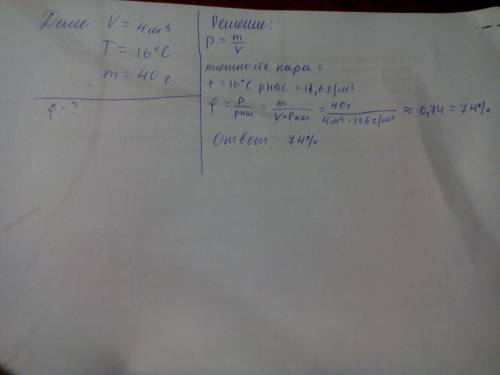 Дано: V = 4м³
T = 16°C
m = 40г
φ - ?
Решение:
ρ = m/V
плотность пара =
t = 16°C ρнас = 13,6г/м³
φ = ρ/ρнас = m/V·ρнас = 40г/4м³·13,6г/м³ ≈ 0,74 = 74%
Ответ: 74%